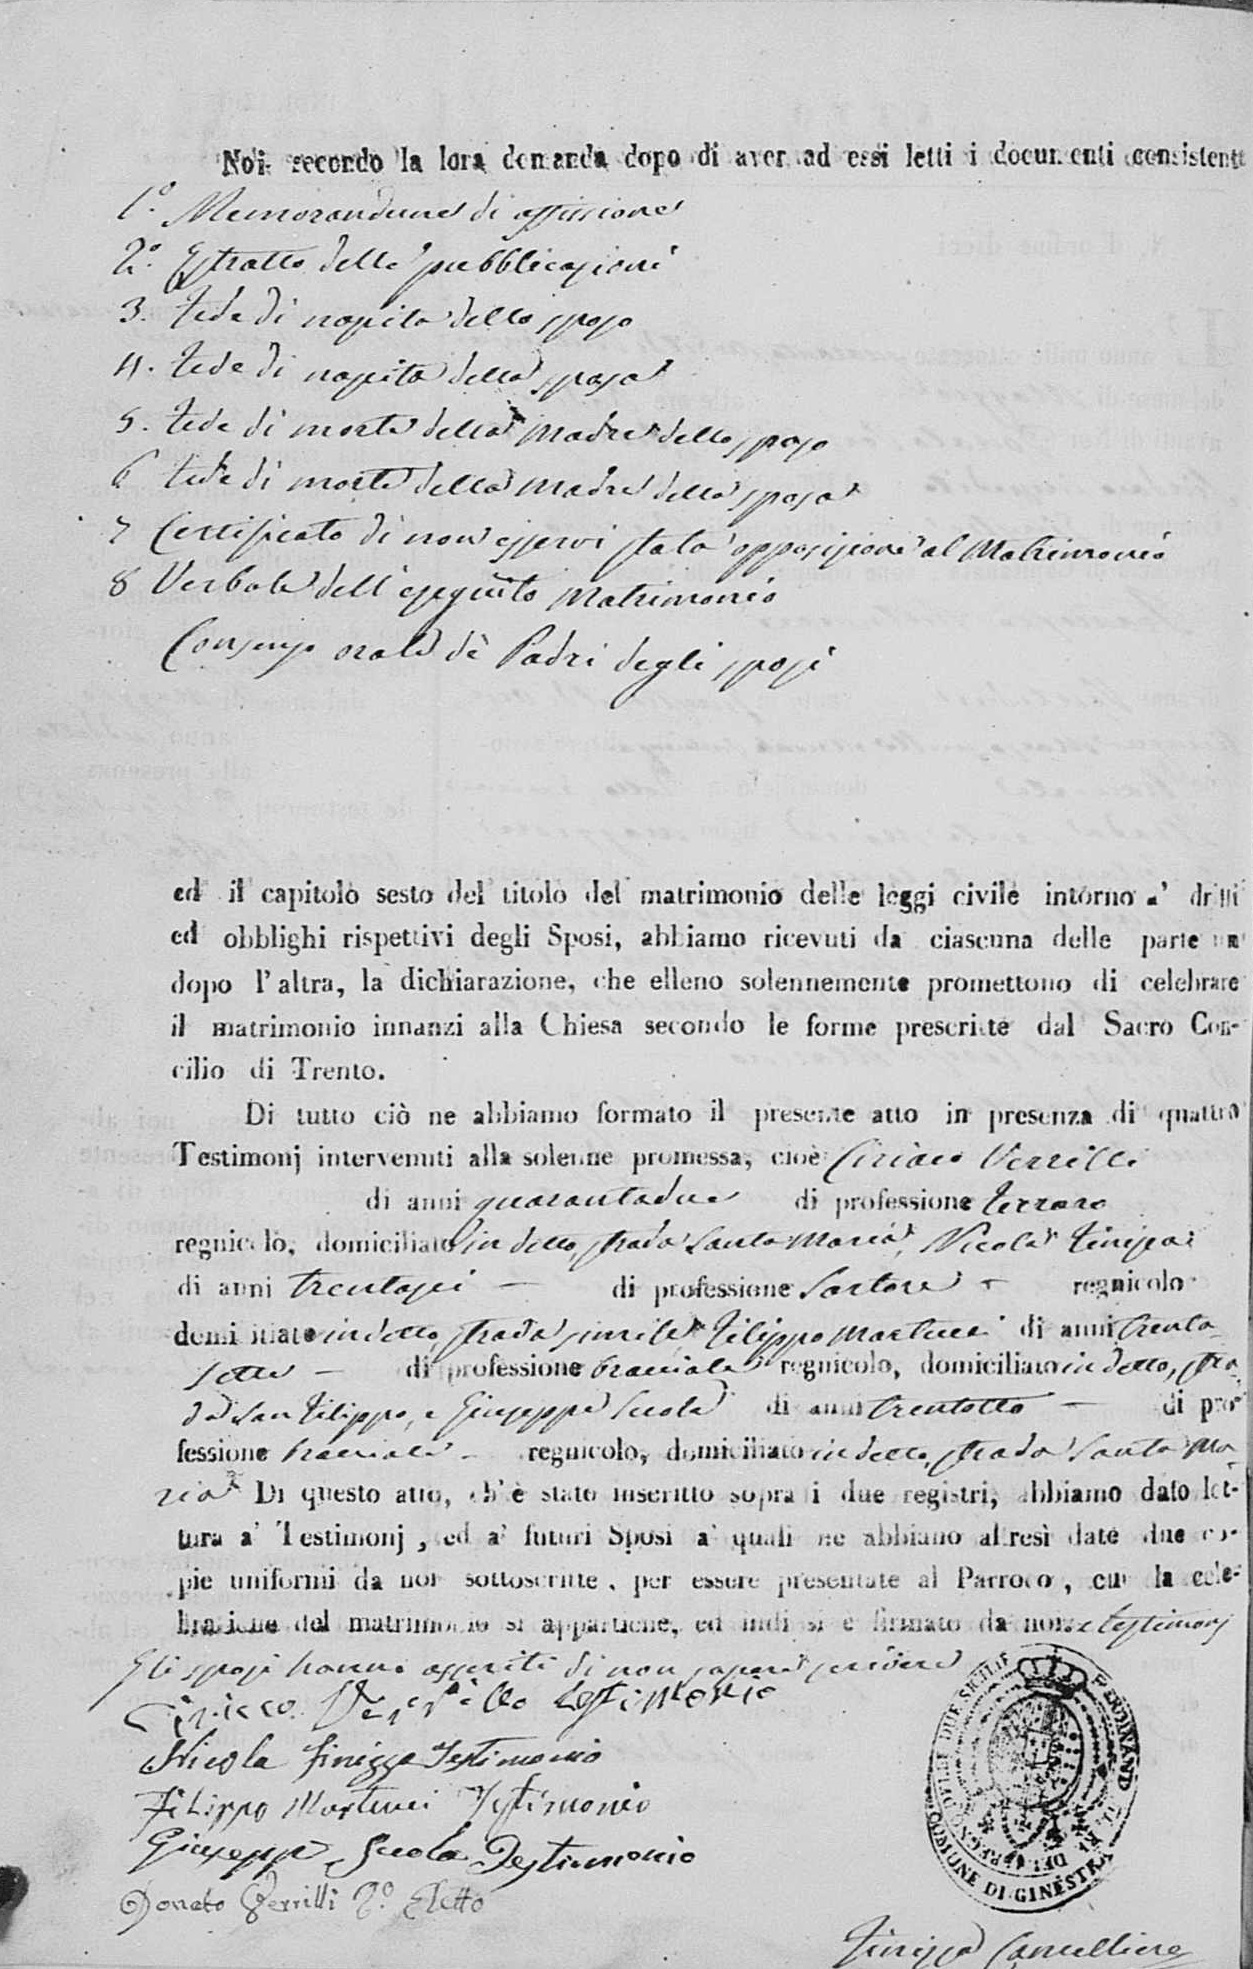 Noi secondo la lora domanda dopo di aver ad essi letti i documenti consistent
1.° Memorandum di affissione
2.° Estratto delle pubblicazioni
3. Fede di nascita dello sposo
4. Fede di nascita della sposa
5. Fede di morte della Madre dello sposo
6 Fede di morte della Madre della sposa
7 Certificato di non esservi stata opposizione al Matrimonio
8 Verbale dell'eseguito Matrimonio
Consenso orale de Padri degli sposi
ed il capitolo sesto del titolo del matrimonio delle leggi civile intorno a' dritti
ed obblighi rispettivi degli Sposi, abbiamo ricevuti da ciascuna delle parte una
dopo l'altra, la dichiarazione, che elleno solennemente promettono di celebrare
il matrimonio innanzi alla Chiesa secondo le forme prescritte dal Sacro Con-
cilio di Trento.
Di tutto ciò ne abbiamo formato il presente atto in presenza di quattro
Testimonj intervenuti alla solenne promessa, cioè Ciriaco Verrilli
di anni quarantadue di professione Ferraro
regnicolo, domiciliato in detto, strada Santa Maria, Nicola Finizza
di anni trentasei — di professione Sartore — regnicolo
domiciliato in detto, strada simile, Filippo Martucci di anni trenta-
sette — di professione bracciale regnicolo, domiciliato in detto, stra-
da San Filippo, e Giuseppe Scola di anni trentotto — di pro-
fessione bracciale — regnicolo, domiciliato in detto, strada Santa Ma-
ria Di questo atto, ch'è stato inscritto sopra i due registri, abbiamo dato let-
tura a' Testimonj, ed a' futuri Sposi a' quali ne abbiano altresì date due co-
pie uniformi da noi sottoscritte, per essere presentate al Parroco, cui la cele-
brazione del matrimonio si appartiene, ed indi si è firmato da noi e testimonj
Gli sposi hanno asseriti di non sapere scrivere
Ciriaco Verrillo testimonio
Nicola Finizza Testimonio
Filippo Martucci Testimonio
Giuseppe Scola Testimonio
Donato Verrilli 2.° Eletto
FERDINAND II RE DEL REGNO DELLE DUE SICILIE
COMUNE DI GINESTRA
Finizza Cancelliere